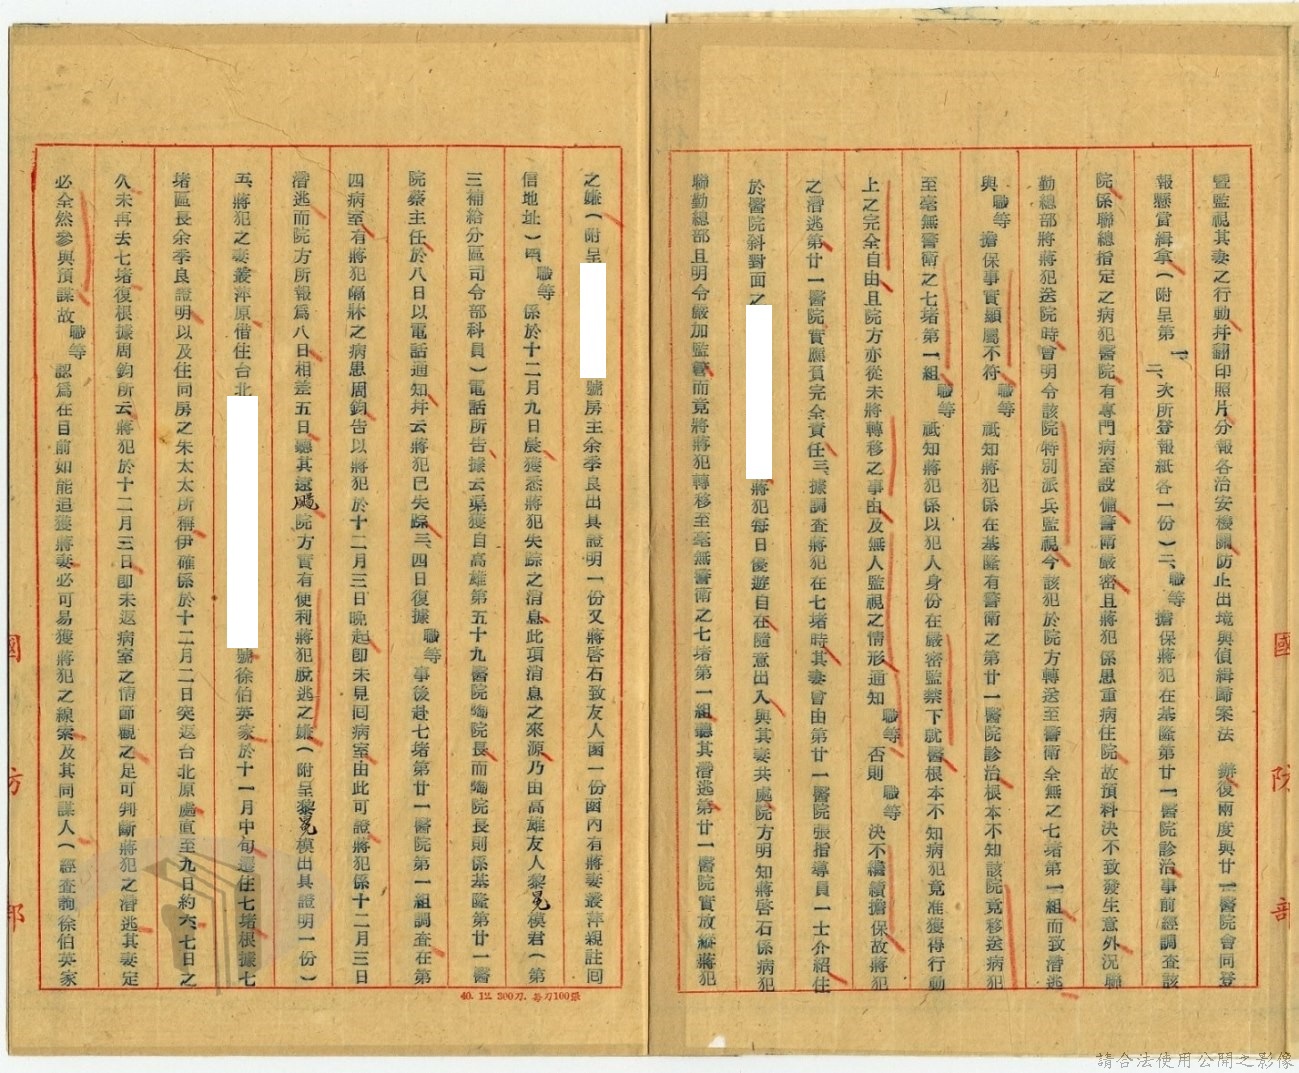 暨監視其妻之行動幷翻印照片分報各治安機關防止出境與偵緝歸案法　辦後兩度與廿一醫院會同登
報懸賞緝拿（附呈第一、二、次所登報紙各一份）二、職等擔保蔣犯在基隆第廿一醫院診治事前經調查該
院係聯總指定之病犯醫院有專門病室設備警衛嚴密且蔣犯係患重病住院故預料決不致發生意外況聯
勤總部將蔣犯送院時曾明令該院特別派兵監視今該犯於院方轉送至警衛全無之七堵第一組而致潛逃
與職等擔保事實顯屬不符職等祗知蔣犯係在基隆有警衛之第廿一醫院診治根本不知該院竟移送病犯
至毫無警衛之七堵第一組職等祗知蔣犯係以犯人身份在嚴密監禁下就醫根本不知病犯竟准獲得行動
上之完全自由且院方亦從未將轉移之事由及無人監視之情形通知職等否則職等決不繼續擔保故蔣犯
之潛逃第廿一醫院實應負完全責任三、據調查蔣犯在七堵時其妻曾由第廿一醫院張指導員一士介紹住
於醫院斜對面之
蔣犯每日優遊自在隨意出入與其妻共處院方明知蔣啓石係病犯
聯勤總部且明令嚴加監管而竟將蔣犯轉移至毫無警衛之七堵第一組聽其潛逃第廿一醫院實放縱蔣犯
之嫌（附呈
號房主余季良出具證明一份又蔣啓石致友人函一份函內有蔣妻叢萍親註回
信地址）四、職等係於十二月九日晨獲悉蔣犯失踪之消息此項消息之來源乃由高雄友人黎冕模君（第
三補給分區司令部科員）電話所告據云渠獲自高雄第五十九醫院院長而院長則係基隆第廿一醫
院蔡主任於八日以電話通知幷云蔣犯已失踪三、四日復據職等事後赴七堵第廿一醫院第一組調查在第
四病室有蔣犯隔牀之病患周鈞告以蔣犯於十二月三日晚起卽未見回病室由此可證蔣犯係十二月三日
潛逃而院方所報爲八日相差五日聽其遠颺院方實有便利蔣犯脫逃之嫌（附呈黎冕模出具證明一份）
五、蔣犯之妻叢萍原借住台北
號徐伯英家於十一月中旬遷住七堵根據七
堵區長余季良證明以及住同房之朱太太所稱伊確係於十二月二日突返台北原處直至九日約六、七日之
久未再去七堵復根據周鈞所云蔣犯於十二月三日卽未返病室之情節觀之足可判斷蔣犯之潛逃其妻定
必全然參與預謀故職等認爲在目前如能追獲蔣妻必可易獲蔣犯之線索及其同謀人（經查詢徐伯英家
國防部
國防部
40. 12. 300刀. 每刀100張
請合法使用公開之影像